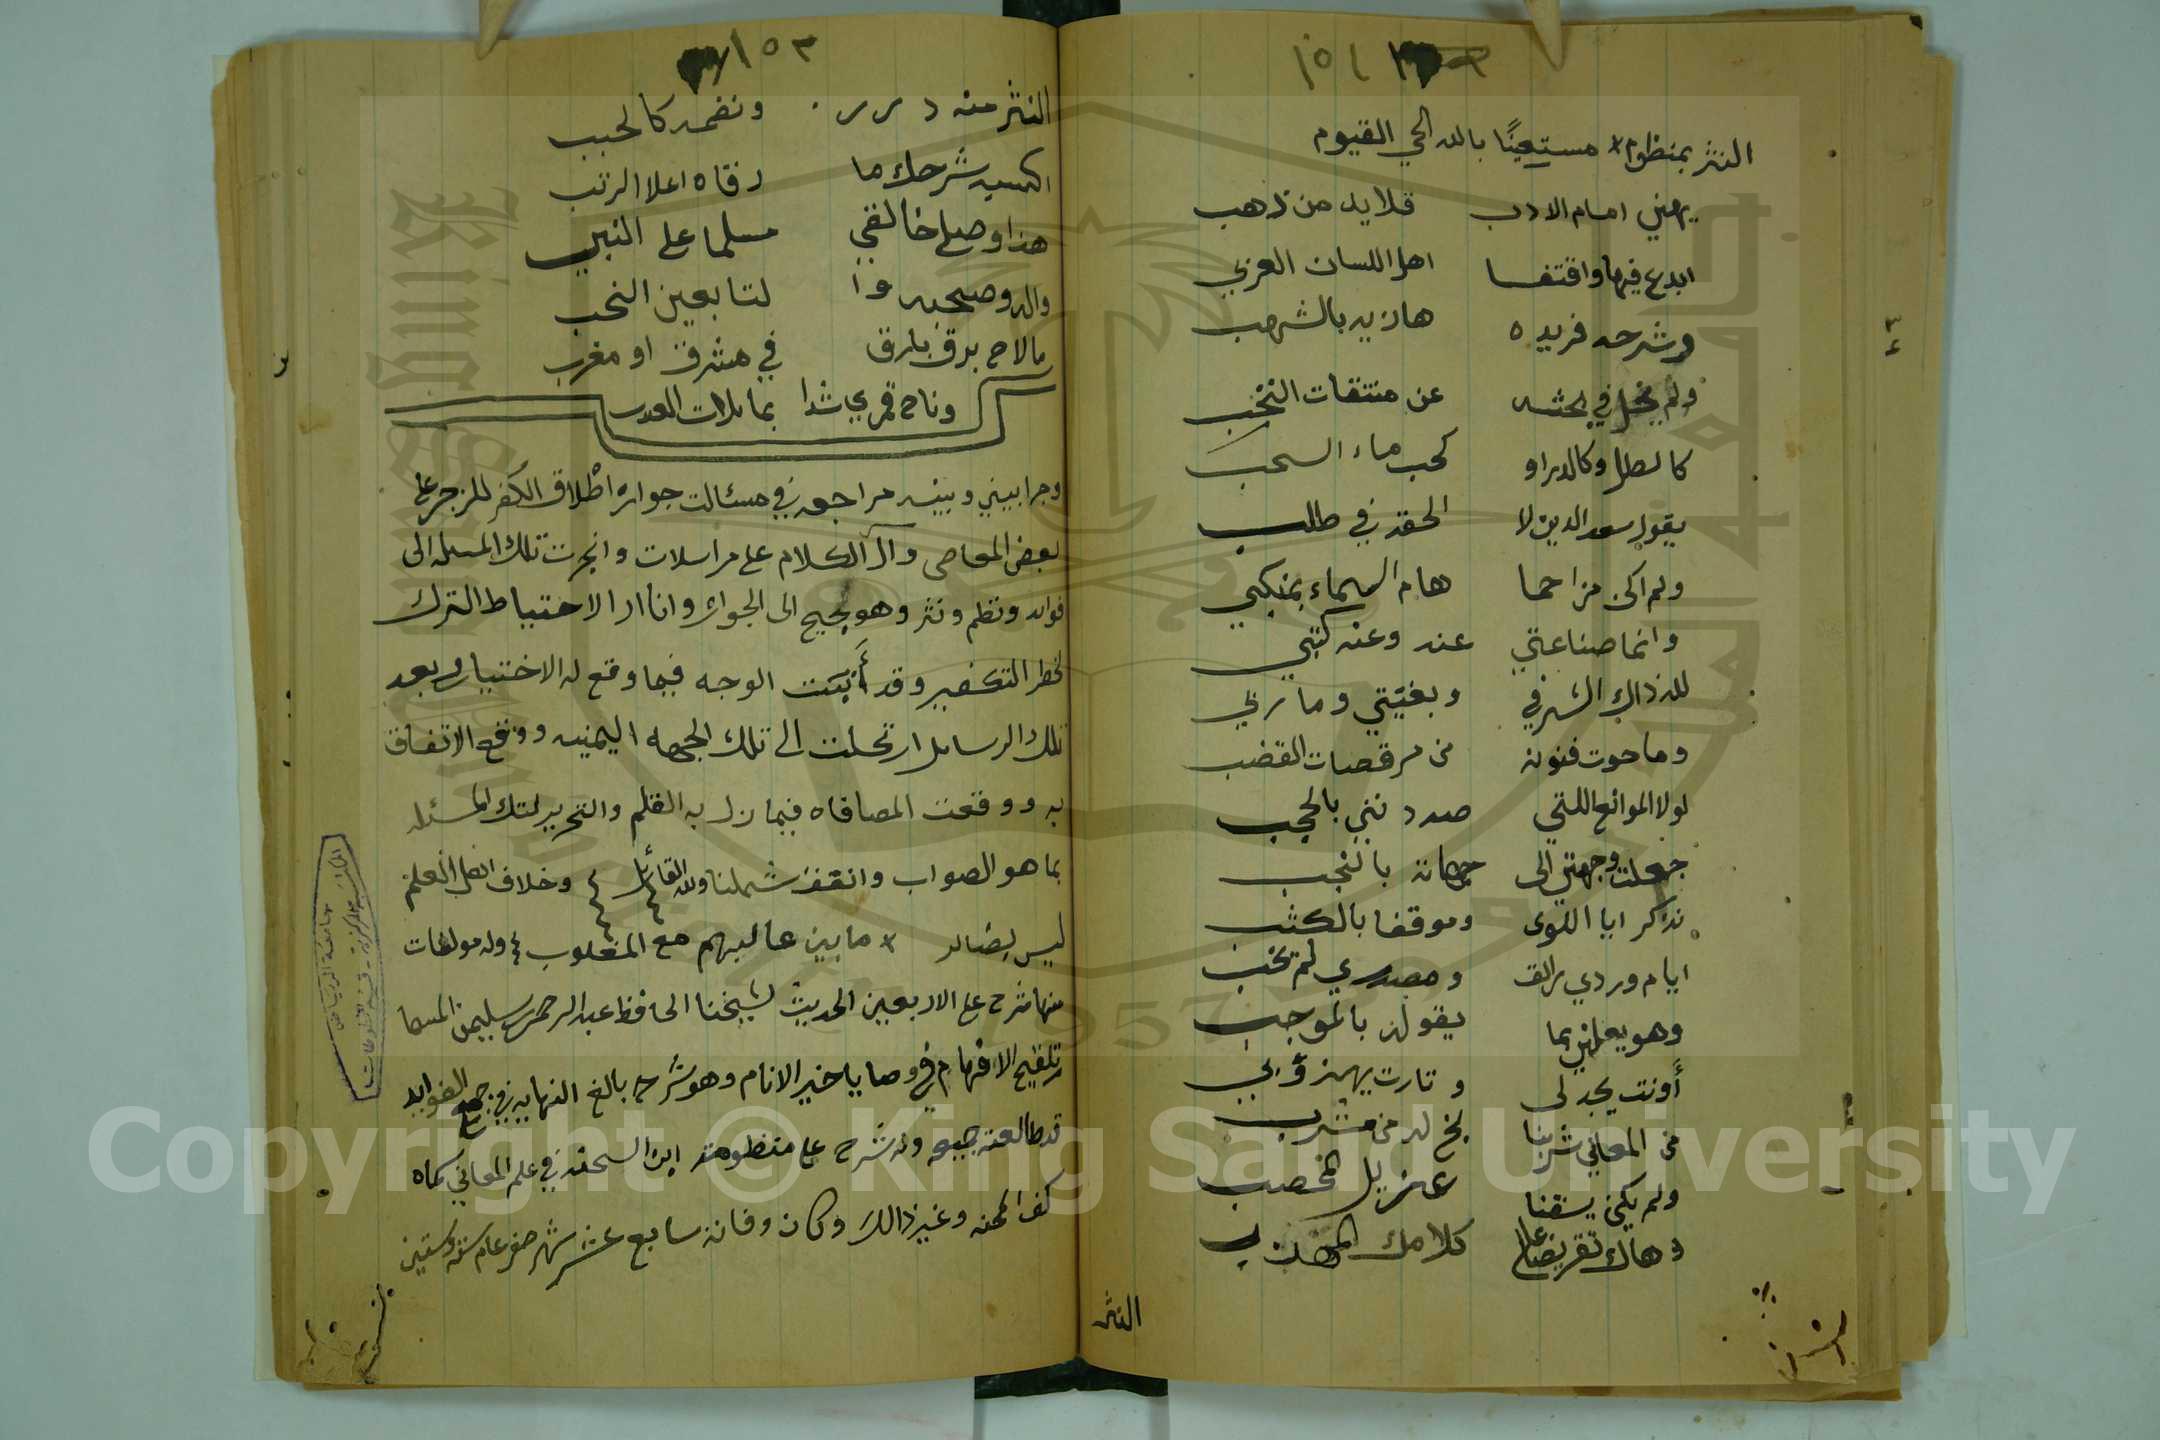 النثر بمنظوم * مستعينًا بالله الحي القيوم
يهني امام الادب قلايد من ذهب
ابدع فيها واقتفا اهل اللسان العربي
وشرحه فريده هازيه بالشهب
ولم يخل في بحثه عن منتقات النخب
كالطل وكالدر او كحب ماء السحب
يقول سعد الدين لا الحقه في طلب
ولم اكن مزاحما هام السماء بمنكبي
وانما صناعتي عنه وعنه كتبي
لله ذاك الشرفي وبغيتي وماربي
وما حوت فنونه من مرقصات القضب
لولا الموانع اللتي صددنني بالحجب
جعلت وجهتي الى جهاته بالنجب
تذكر ايا اللوى وموقفا بالكثب
ايام وردي رائق ومصدري لم يخب
وهو يعلني بما يقوله بالموجب
أونت يجدلي وتارت يهزؤبي
من المعاني شربنا بخ له من مشرب
ولم يكن يسقنا
وهاك تقريضا على كلامك المهذب
النثر
١٥٣
النثر منه درر ونضمه كالحبب
اكسيه شرحك ما رقاه اعلا الرتب
هذا وصلى خالقي مسلما على النبي
واله وصحبه وا لتابعين النحب
ما لاح برق بارق في مشرق او مغرب
وناح قمري شدا بمايلات العدب
وجرا بيني وبينه مراجعه في مسئالت جواز اطلاق الكفر للزجر على
بعض المعاصي وآل الكلام على مراسلات وانجرت تلك المسله الى
فوائد ونظم ونثر وهو يجيح الى الجواز وانا ار الاحتياط الترك
لخطر التكفير وقد أبنت الوجه فيما وقع له الاختيار وبعد
تلك الرسايل ارتحلت الى تلك الجهه اليمنيه ووقع الاتفاق
به ووقعت المصافاه فيما زل به القلم والتحرير لتك المسئله
بما هو الصواب واتفق شملنا ولله القائل وخلاف اهل العلم
ليس بضائر * ما بين غالبهم مع المغلوب وله مولفات
منها شرح على الاربعين الحديث لشيخنا الحافظ عبد الرحمن سليمن المسما
تلقيح الافهام في وصايا خير الانام وهو شرح بالغ النهايه في جمع الفوايد
قد طالعته جميعه وله شرح على منظومة ابن الشحنه في علم المعاني سماه
كف المحنه وغير ذالك وكان وفاته سابع عشر شهر صفر عام سته وستين
Copyright © King Saud University